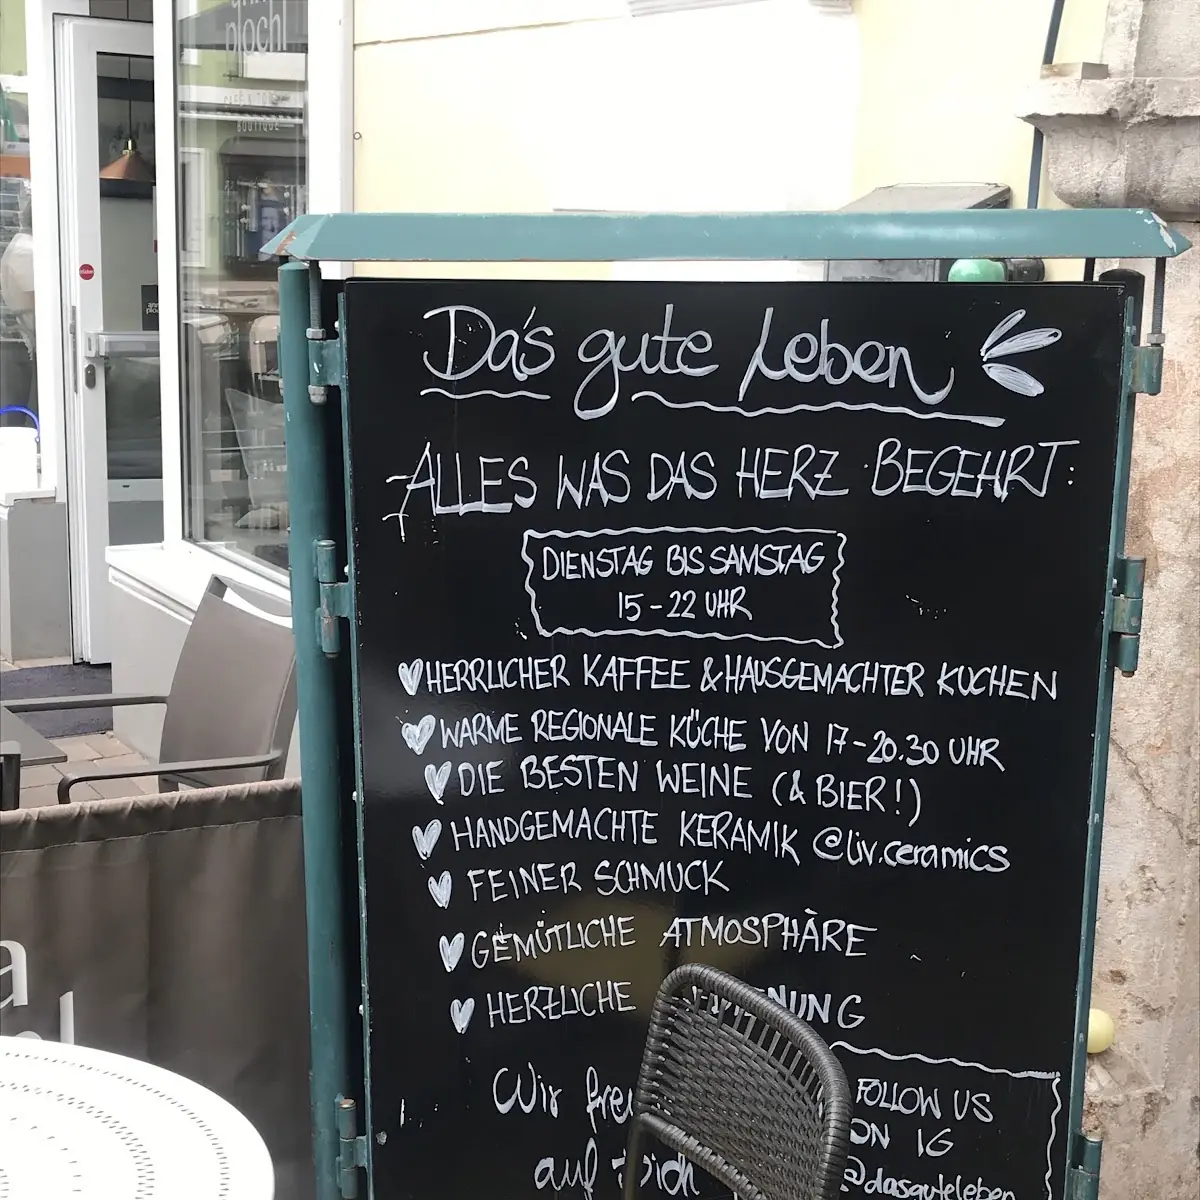 plochl
BOUTIQUE
Das gute Leben
ALLES WAS DAS HERZ BEGEHRT:
DIENSTAG BIS SAMSTAG
15-22 UHR
HERRLICHER KAFFEE & HAUSGEMACHTER KUCHEN
WARME REGIONALE KÜCHE VON 17-20.30 UHR
DIE BESTEN WEINE (& BIER!)
HANDGEMACHTE KERAMIK @liv.ceramics
FEINER SCHMUCK
GEMÜTLICHE ATMOSPHÄRE
HERZLICHE
Wir
auf Dich
FOLLOW US
ON IG
@dasguteleben